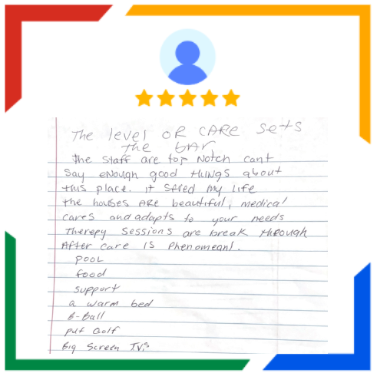 The level OF CARE Sets
the bar
the Staff are top Notch cant
Say enough good things about
this place. it saved my life
the houses ARE beautiful, medical
cares and adapts to your needs
Therepy Sessions are break through
After care IS Phenomeanl.
pool
food
support
a warm bed
B-Ball
put Golf
big Screen TV's